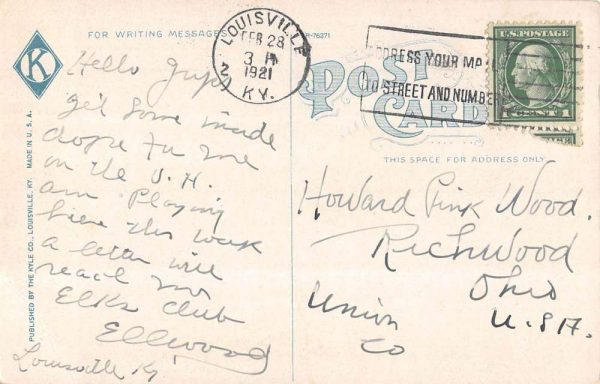 FOR WRITING MESSAGES
R-76371
K
PUBLISHED BY THE KYLE CO., LOUISVILLE, KY. MADE IN U. S. A.
LOUISVILLE
FEB 28
3 P
1921
KY.
ADDRESS YOUR MAIL
TO STREET AND NUMBER
U.S. POSTAGE
1 CENT 1
POST
CARD
THIS SPACE FOR ADDRESS ONLY
Hello
get some inside
dope for me
on the U. H.
am playing
here this week
a letter will
reach me
Elks Club
Ellwood
Louisville Ky.
Howard Pink Wood.
Richwood
Ohio
Union
Co
U.S.A.